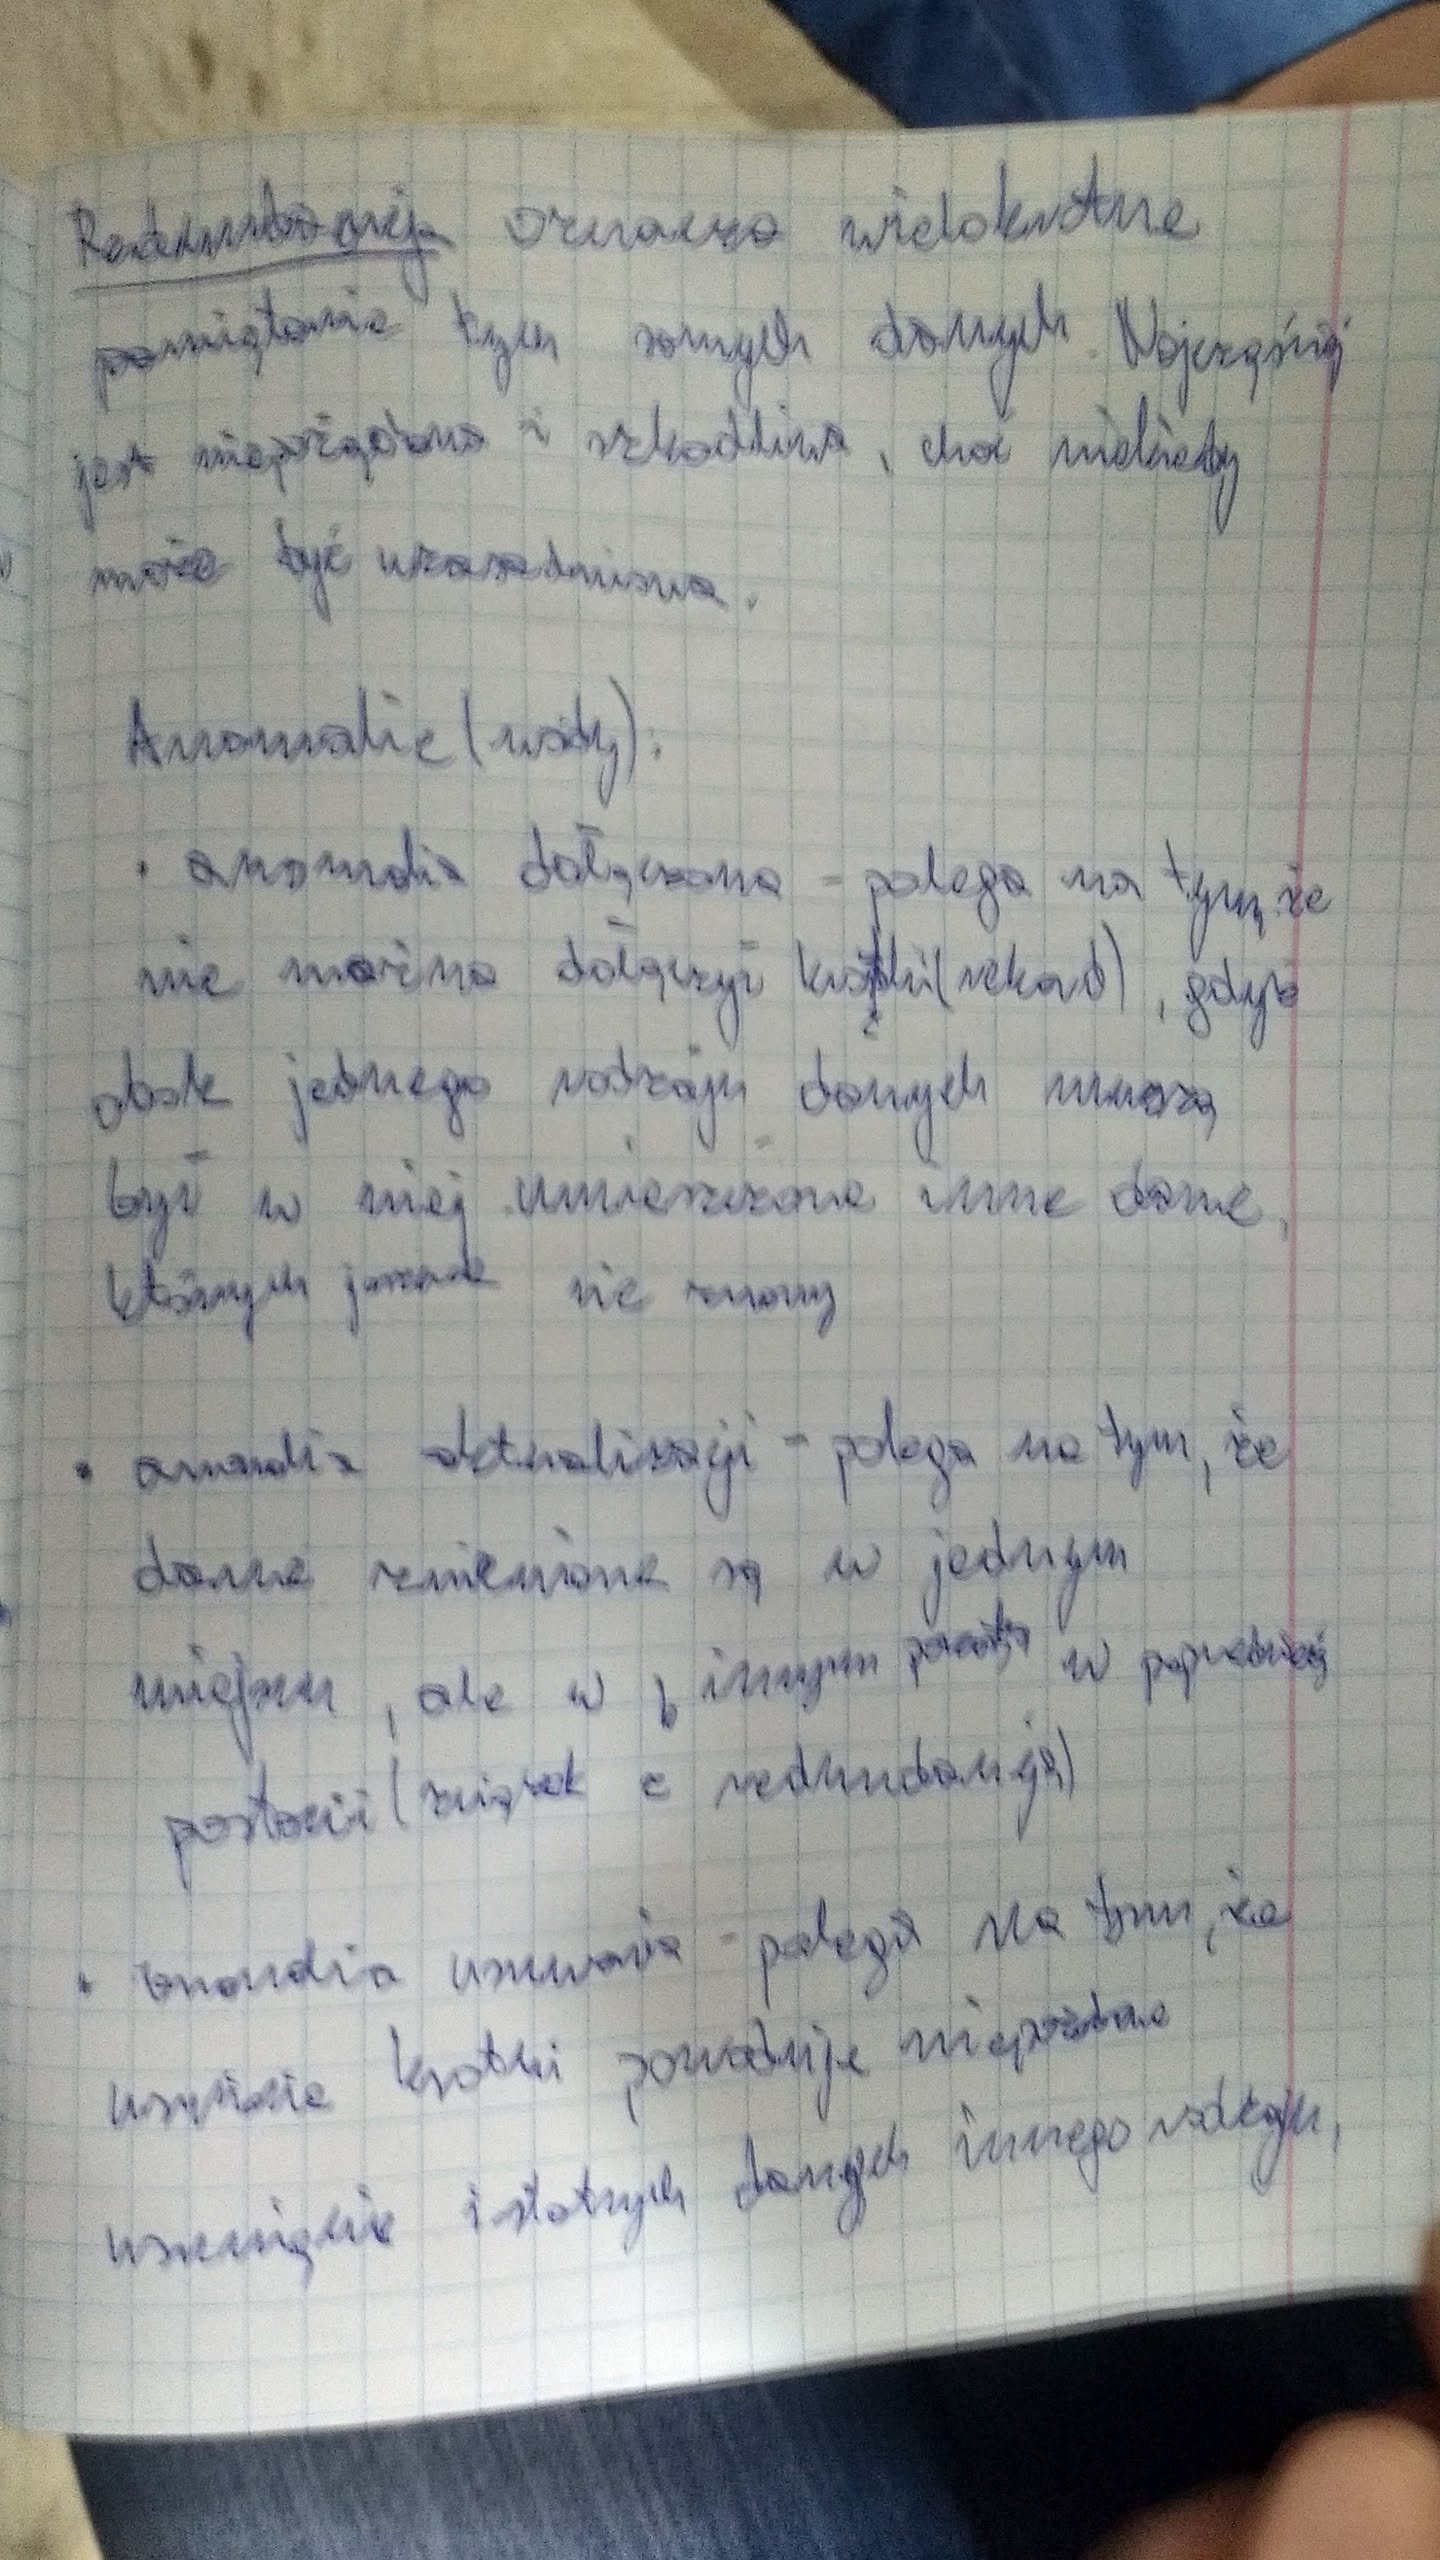 Redundancja oznacza wielokrotne
pamiętanie tych samych danych. Najczęściej
jest niepożądana i szkodliwa, choć niekiedy
może być uzasadniona.
Anomalie (wady):
• anomalia dołączona - polega na tym, że
nie można dołączyć krotki (rekord), gdyż
obok jednego rodzaju danych muszą
być w niej umieszczone inne dane,
których jeszcze nie znamy
• anomalia aktualizacji - polega na tym, że
dane zmienione są w jednym
miejscu, ale w innym w poprzedniej
postaci (związek z redundancją)
• anomalia usuwania - polega na tym, że
usunięcie krotki powoduje
usunięcie istotnych danych innego rodzaju,